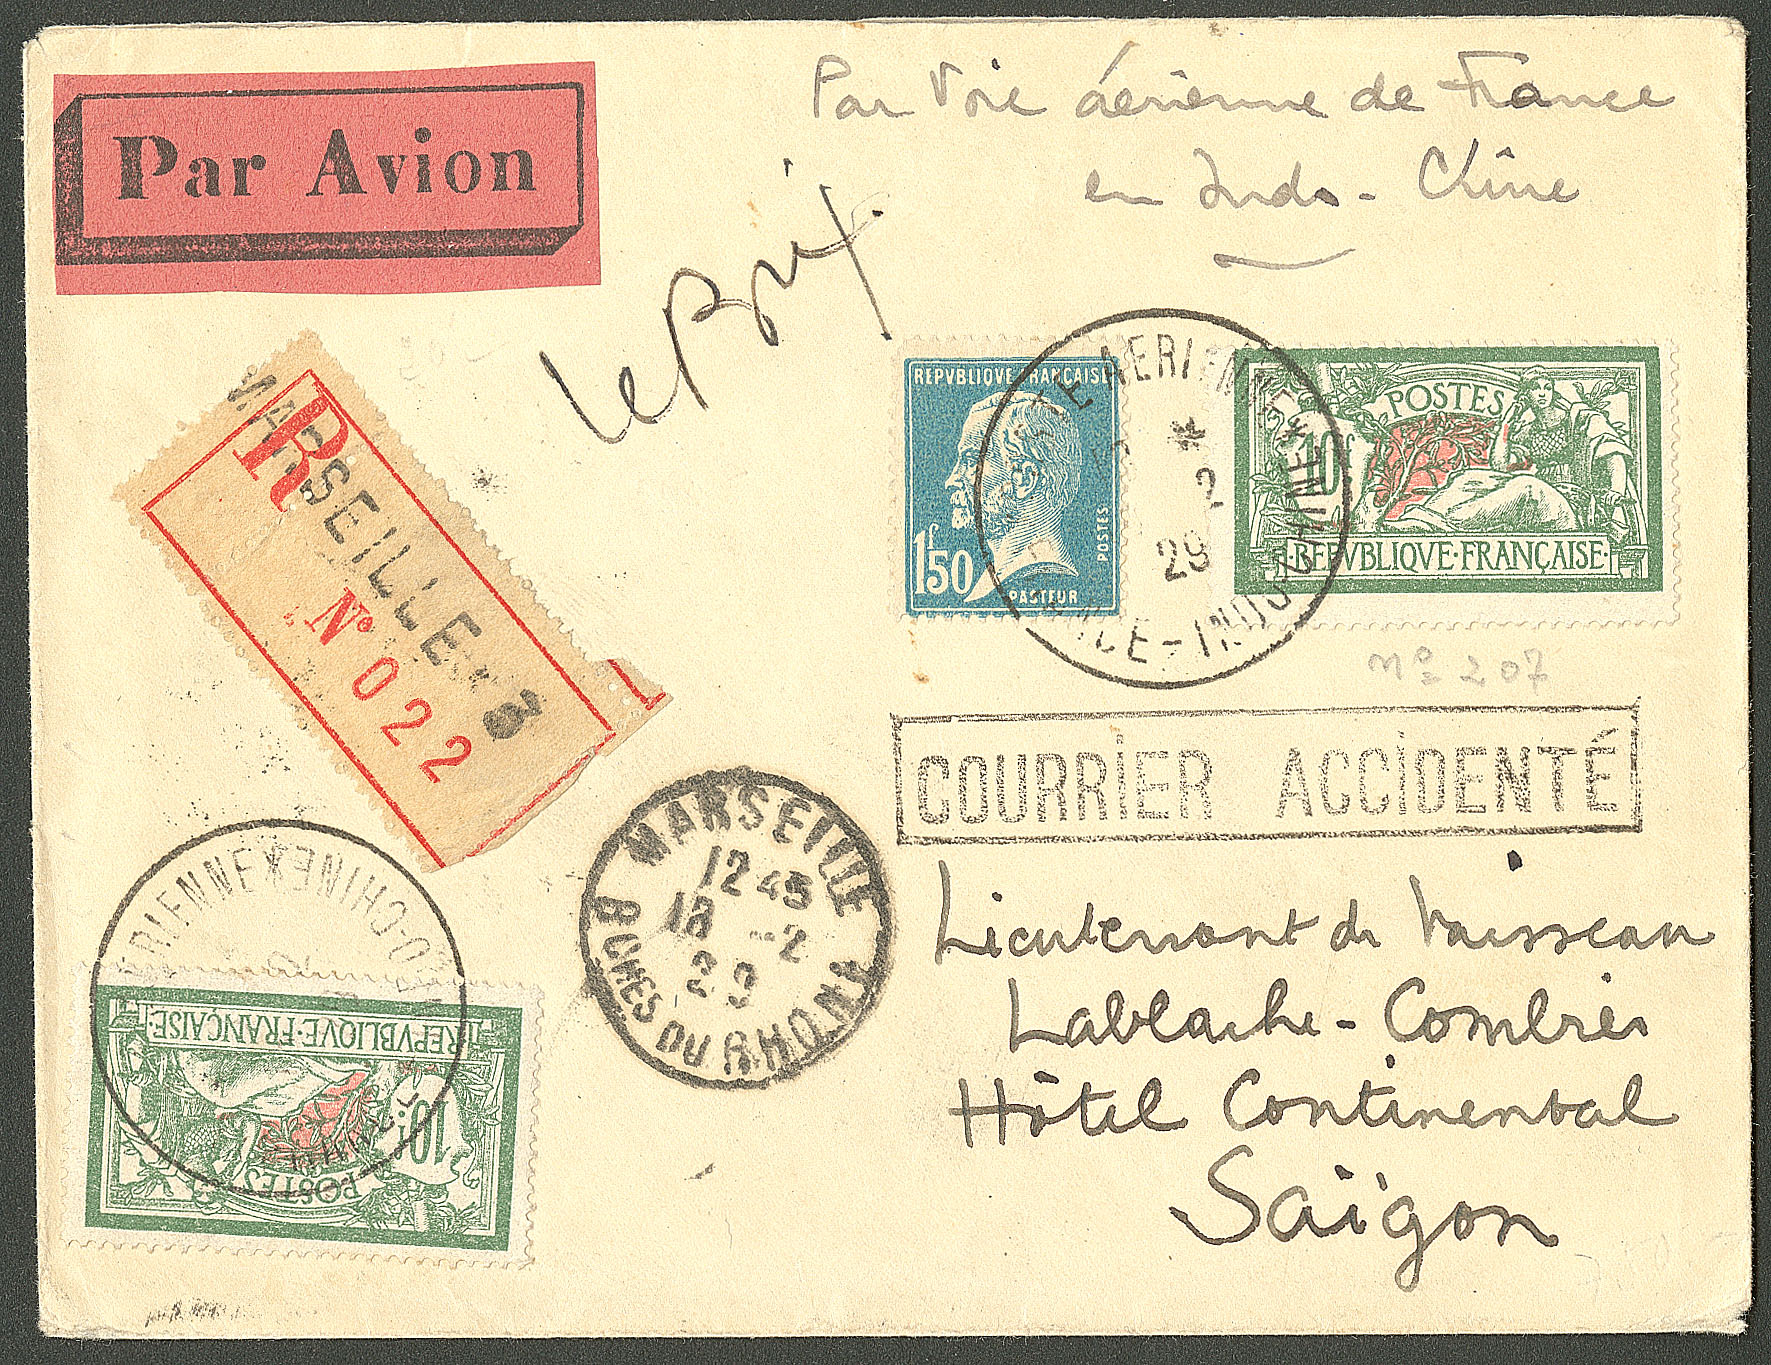 Par Avion
Par Voie aérienne de France
en Indo-Chine
Le Brix
R
MARSEILLE 3
No 022
REPVBLIQVE FRANÇAISE
1f50
POSTES
PASTEUR
AERIENNE
*
2
29
FRANCE-INDOCHINE *
POSTES
10f
REPVBLIQVE·FRANÇAISE
no 207
COURRiER ACCiDENTÉ
MARSEILLE
12 45
18 -2
29
BCHES DU RHONE
Lieutenant de Vaisseau
Lablache-Combier
Hôtel Continental
Saïgon
AERIENNE * INDO-CHINE
REPVBLIQVE·FRANÇAISE
10f
POSTES